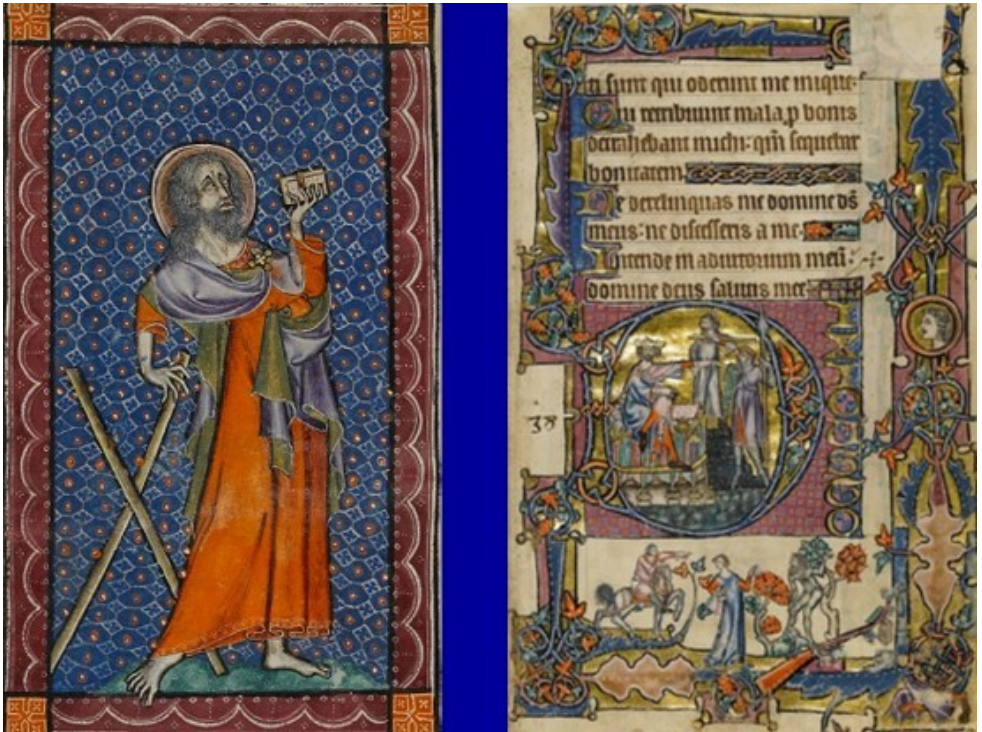 ti sunt qui oderunt me inique:
Qui retribuunt mala ꝑ bonis
detrahebant michi: qm̄ sequebar
bonitatem.
Ne derelinquas me domine ds̄
meus: ne discesseris a me.
Intende in adiutorium meū:
domine deus salutis mee
38